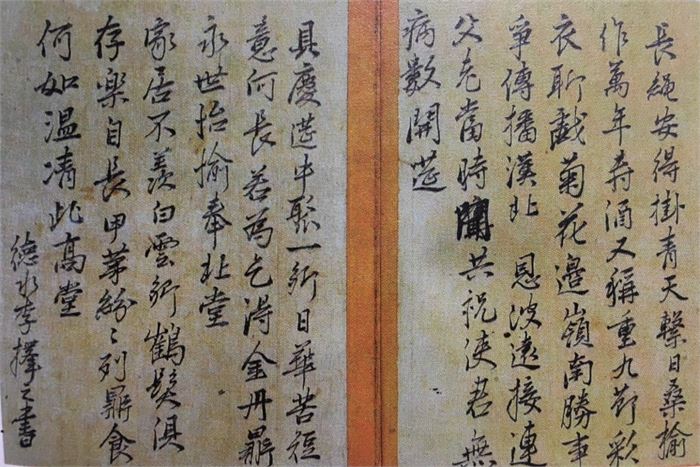 長繩安得掛青天繫日桑榆
作萬年壽酒又稱重九節彩
衣聊戲菊花邊嶺南勝事
爭傳播漢北 恩波遠接連
父老當時共祝使君無
病數開筵
具慶筵中聚一行日華苦短
意何長若為乞得金丹鼎
永世怡愉奉北堂
家居不羨白雲行鶴髮俱
存樂自長甲第紛〻列鼎食
何如溫凊此高堂
德水李擇之書